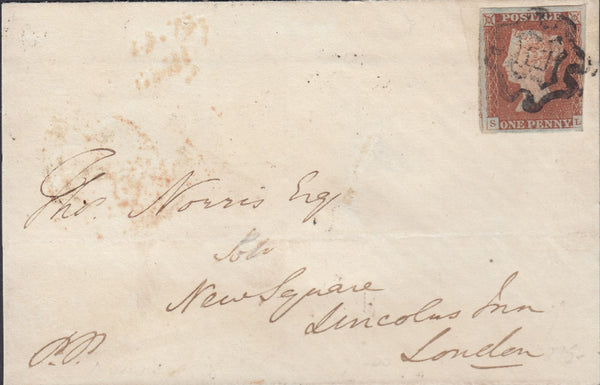 POSTAGE
S ONE PENNY L
Thos. Norris Esq
New Square
Lincolns Inn
London
P.P.